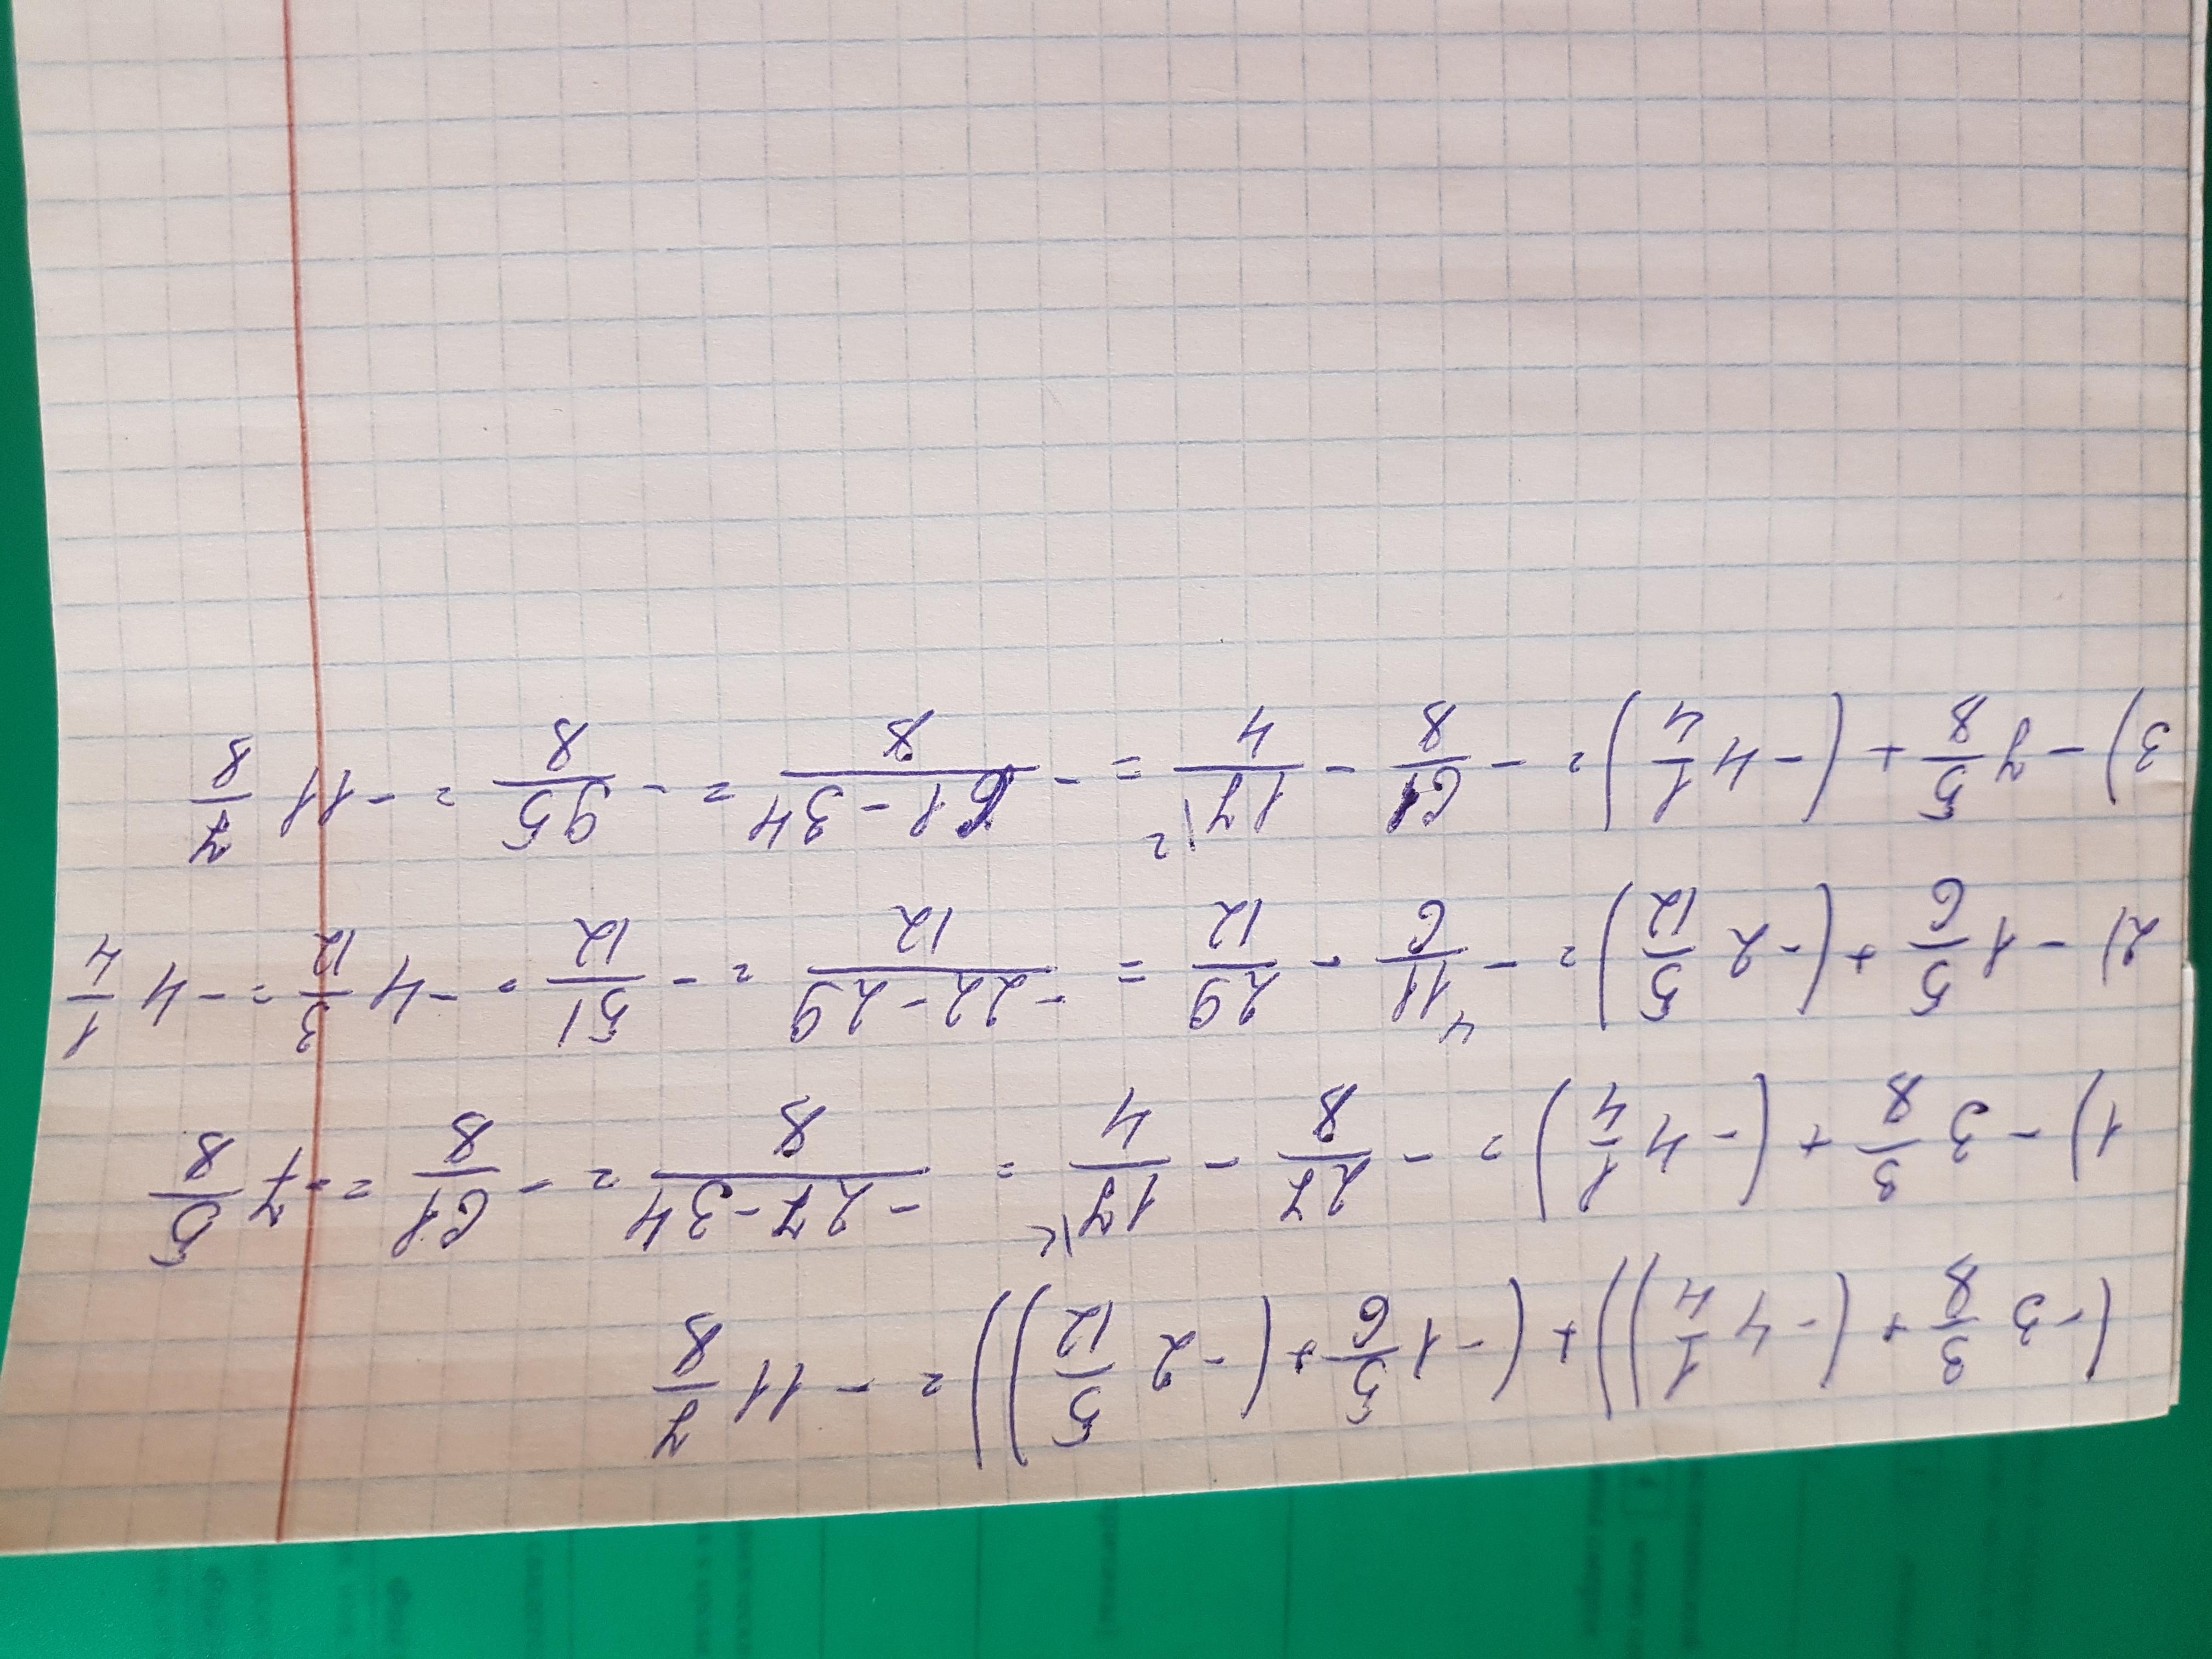 (-3 3/8 + (-4 1/4)) + (-1 5/6 + (-2 5/12)) = -11 7/8
1) -3 3/8 + (-4 1/4) = -27/8 - 17/4 \2 = -27-34/8 = -61/8 = -7 5/8
2) -1 5/6 + (-2 5/12) = -11/6 - 29/12 = -22-29/12 = -51/12 = -4 3/12 = -4 1/4
3) -7 5/8 + (-4 1/4) = -61/8 - 17/4 \2 = -61-34/8 = -95/8 = -11 7/8